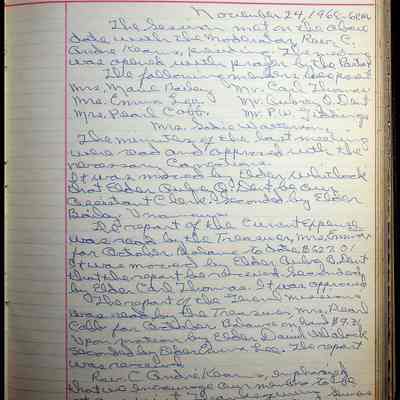 November 24, 1968 - 6 P.M.
The Session met on the above
date with the Moderator Rev. C.
André Kearns, presiding. The meeting
was opened with prayer by the Pastor
The following members were present
Mrs. Marie Bailey Mr. Carl Thomas
Mrs. Emma Lee Mr. Aubrey O. Dent
Mrs. Pearl Cobb Mr. P.W. Giddings
Mrs. Sadie
The minutes of the last meeting
were read and approved with the
necessary Corrections.
It was moved by Elder
that Elder Aubrey O. Dent be our
Assistant Clerk. Seconded by Elder
Bailey. Unanimous
The report of the Current Expense
was read by the Treasurer, Mrs. Emma
for October. Balance to date, $627.01
It was moved by Elder Aubrey O. Dent
that the report be received. Seconded
by Elder Carl Thomas. It was approved
The report of the General missions
was read by the Treasurer, Mrs. Pearl
Cobb for October. Balance on hand $9.36
Upon motion by Elder David
Seconded by Elder Emma Lee. The report
was received.
Rev. C. André Kearns, emphasized
that we encourage our members to be